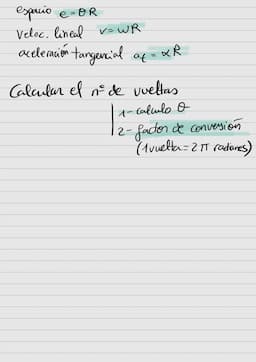 espacio e = θR
Veloc. lineal v = ωR
aceleración tangencial at = αR
Calcular el nº de vueltas
1- calculo θ
2- factor de conversión
(1 vuelta = 2π radanes)